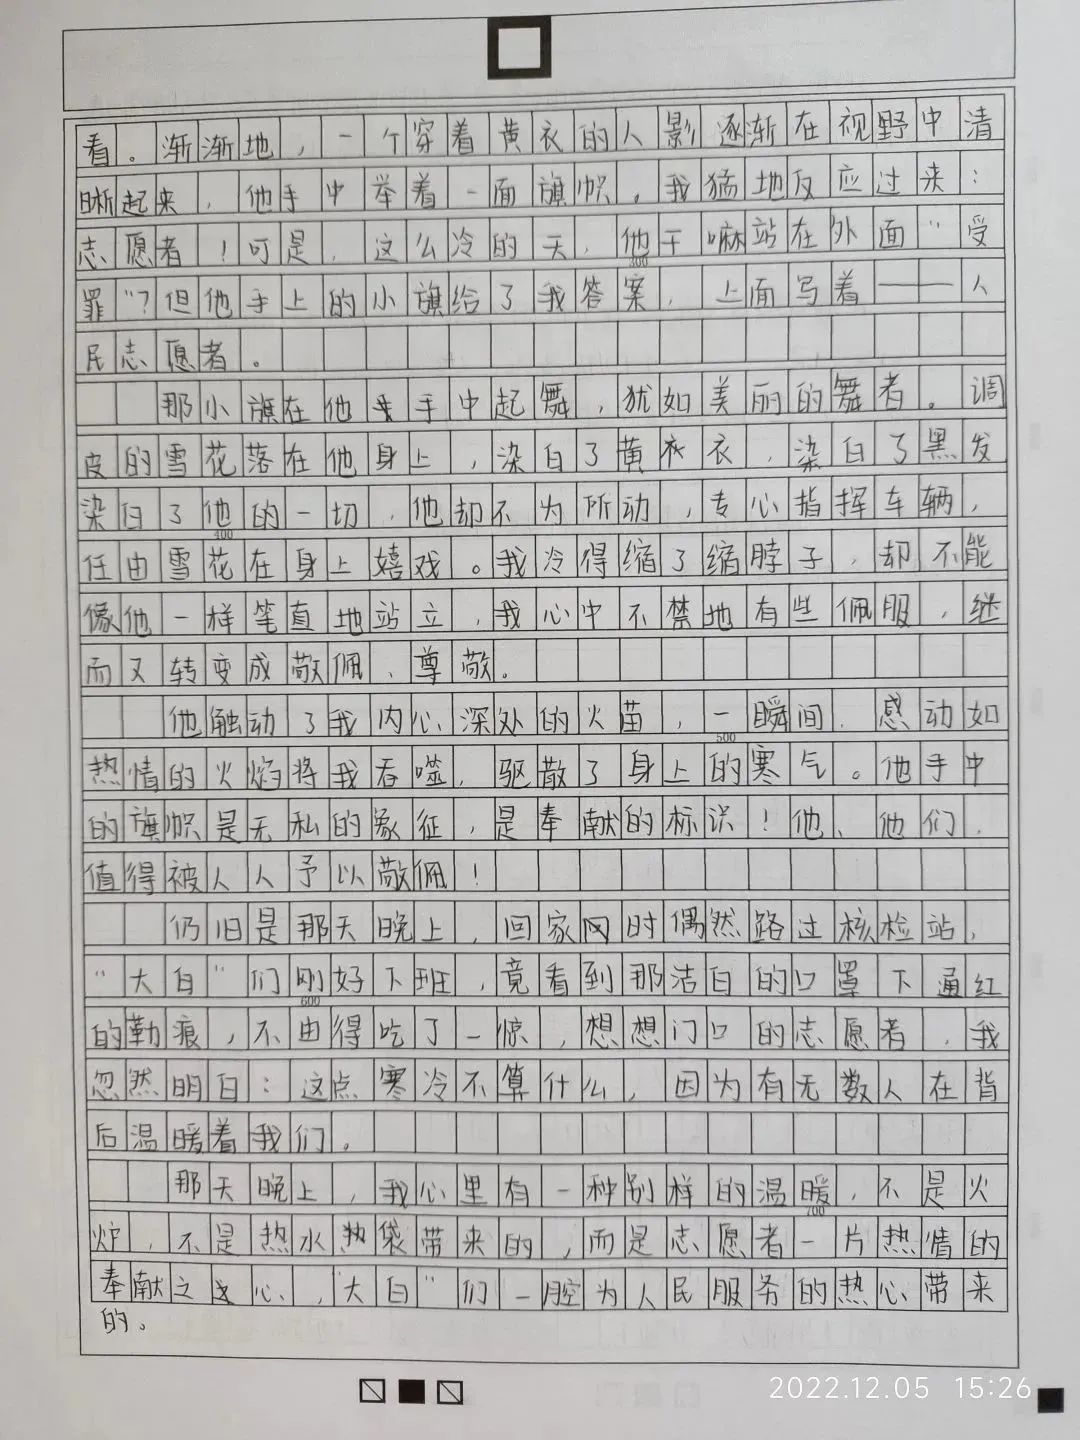 看。渐渐地，一个穿着黄衣的人影逐渐在视野中清
晰起来，他手中举着一面旗帜。我猛地反应过来：
志愿者！可是，这么冷的天，他干嘛站在外面“受
300
罪”？但他手上的小旗给了我答案，上面写着——人
民志愿者。
那小旗在他手中起舞，犹如美丽的舞者。调
皮的雪花落在他身上，染白了黄衣，染白了黑发
染白了他的一切，他却不为所动，专心指挥车辆，
400
任由雪花在身上嬉戏。我冷得缩了缩脖子，却不能
像他一样笔直地站立，我心中不禁地有些佩服，继
而又转变成敬佩、尊敬。
他触动了我内心深处的火苗，一瞬间，感动如
500
热情的火焰将我吞噬，驱散了身上的寒气。他手中
的旗帜是无私的象征，是奉献的标识！他、他们，
值得被人人予以敬佩！
仍旧是那天晚上，回家时偶然路过核检站，
“大白”们刚好下班，竟看到那洁白的口罩下通红
600
的勒痕，不由得吃了一惊，想想门口的志愿者，我
忽然明白：这点寒冷不算什么，因为有无数人在背
后温暖着我们。
那天晚上，我心里有一种别样的温暖，不是火
700
炉，不是热水热袋带来的，而是志愿者一片热情的
奉献之心，“大白”们一腔为人民服务的热心带来
的。
2022.12.05 15:26